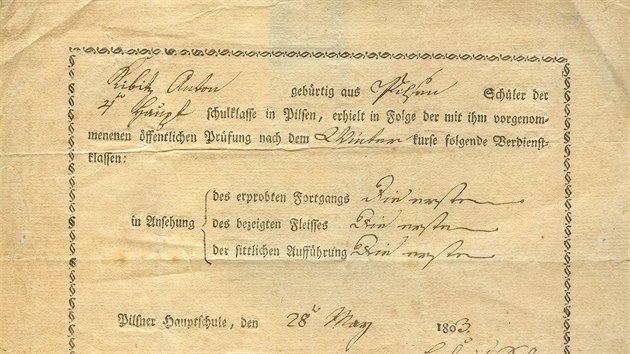 Ribitz Anton gebürtig aus Pilsen Schüler der
4ᵗʳ Haupt schulklasse in Pilsen, erhielt in Folge der mit ihm vorgenom-
menenen öffentlichen Prüfung nach dem Winter kurse folgende Verdienst-
klassen:
des erprobten Fortgangs Die ersten
in Ansehung des bezeigten Fleisses Die ersten
der sittlichen Aufführung Die ersten
Pilsner Hauptschule, den 28ᵗ May 1803.